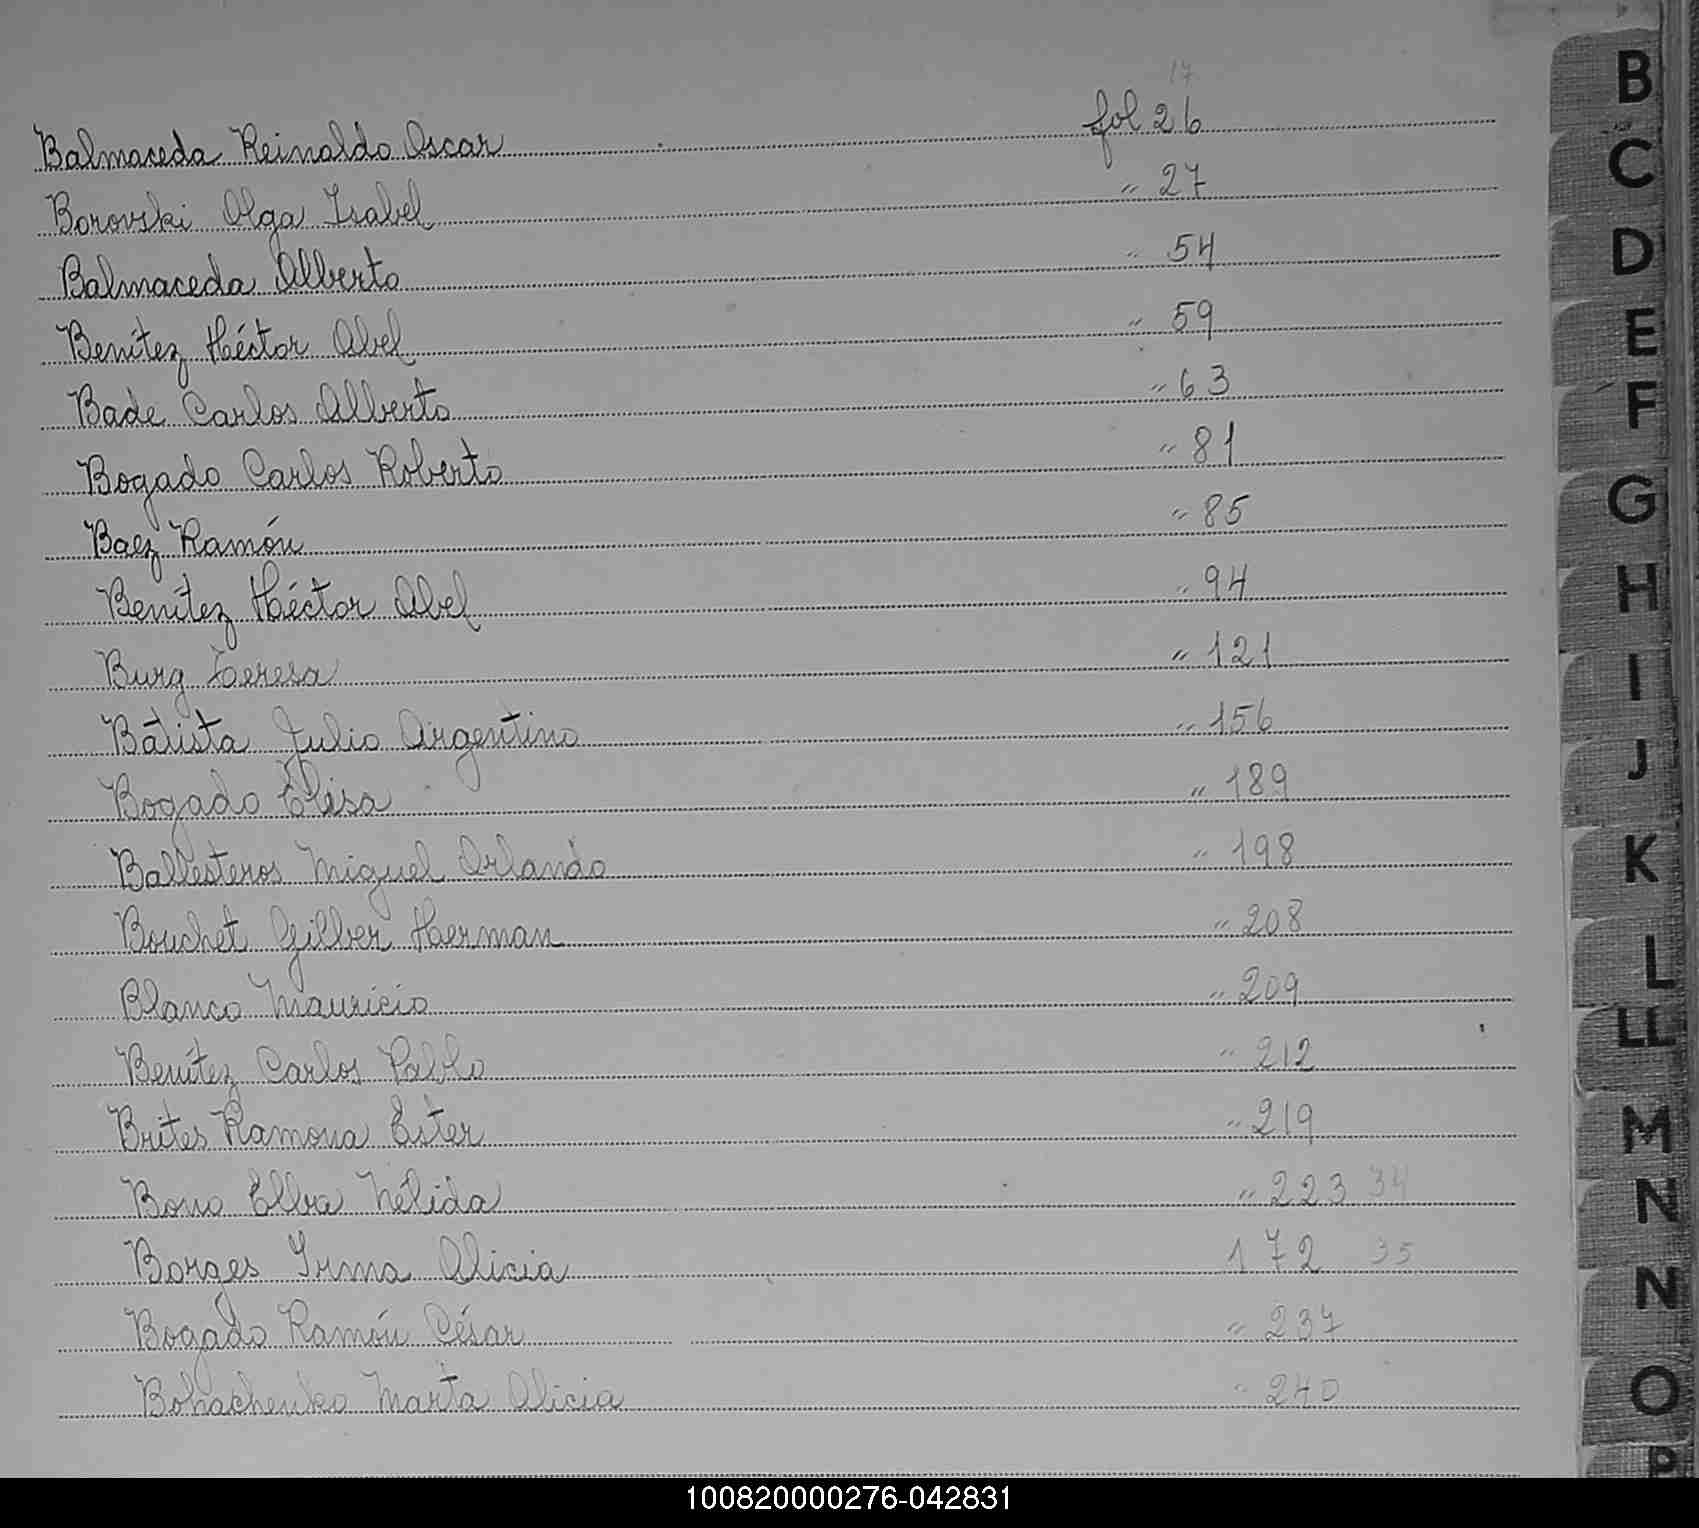 17
Balmaceda Reinaldo Oscar fol 26
Borovski Olga Isabel " 27
Balmaceda Alberto " 54
Benítez Héctor Abel " 59
Bade Carlos Alberto " 63
Bogado Carlos Roberto " 81
Baez Ramón " 85
Benítez Héctor Abel " 94
Burg Teresa " 121
Batista Julio Argentino " 156
Bogado Elisa " 189
Ballesteros Miguel Orlando " 198
Bouchet Gilber Herman " 208
Blanco Mauricio " 209
Benítez Carlos Pablo " 212
Brites Ramona Ester " 219
Bono Elba Nélida " 223 34
Borges Irma Alicia 172 35
Bogado Ramón César " 237
Bohachenko Marta Alicia " 240
B
C
D
E
F
G
H
I
J
K
L
LL
M
N
N
O
P
100820000276-042831